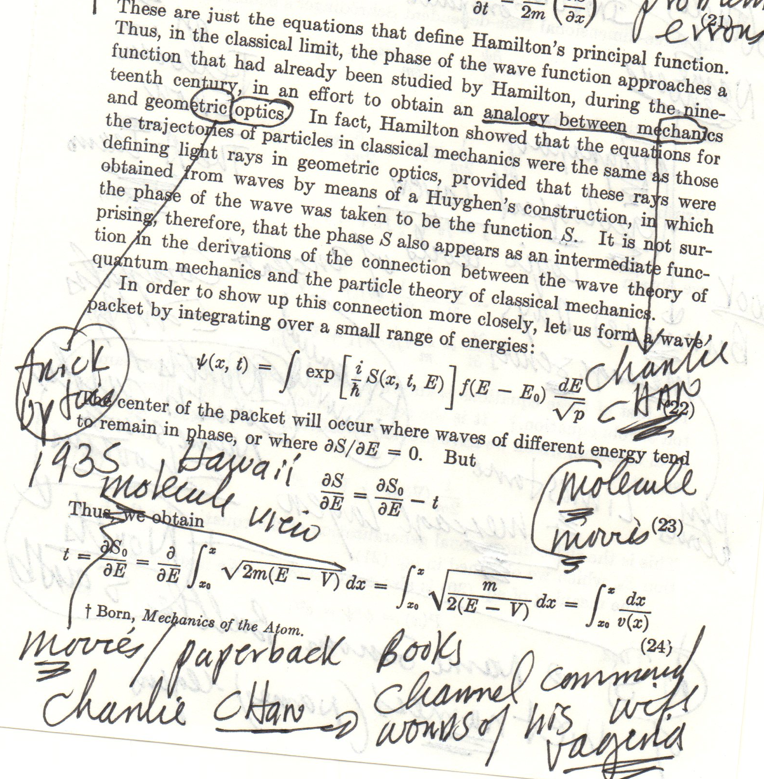 ∂t 2m (∂x)
(21)
errors
These are just the equations that define Hamilton's principal function.
Thus, in the classical limit, the phase of the wave function approaches a
function that had already been studied by Hamilton, during the nine-
teenth century, in an effort to obtain an analogy between mechanics
and geometric optics. In fact, Hamilton showed that the equations for
the trajectories of particles in classical mechanics were the same as those
defining light rays in geometric optics, provided that these rays were
obtained from waves by means of a Huyghen's construction, in which
the phase of the wave was taken to be the function S. It is not sur-
prising, therefore, that the phase S also appears as an intermediate func-
tion in the derivations of the connection between the wave theory of
quantum mechanics and the particle theory of classical mechanics.
In order to show up this connection more closely, let us form a wave
packet by integrating over a small range of energies:
ψ(x, t) = ∫ exp [i/ħ S(x, t, E)] f(E − E₀) dE/√p
(22)
Charlie
CHAN
trick
by
center of the packet will occur where waves of different energy tend
to remain in phase, or where ∂S/∂E = 0. But
1935 Hawaii
molecule view
∂S/∂E = ∂S₀/∂E − t
(23)
molecule
movies
Thus we obtain
t = ∂S₀/∂E = ∂/∂E ∫ₓ₀ˣ √2m(E − V) dx = ∫ₓ₀ˣ √m/2(E − V) dx = ∫ₓ₀ˣ dx/v(x)
(24)
† Born, Mechanics of the Atom.
movies/paperback Books
Charlie CHAN → channel
words of his wife
vagenia